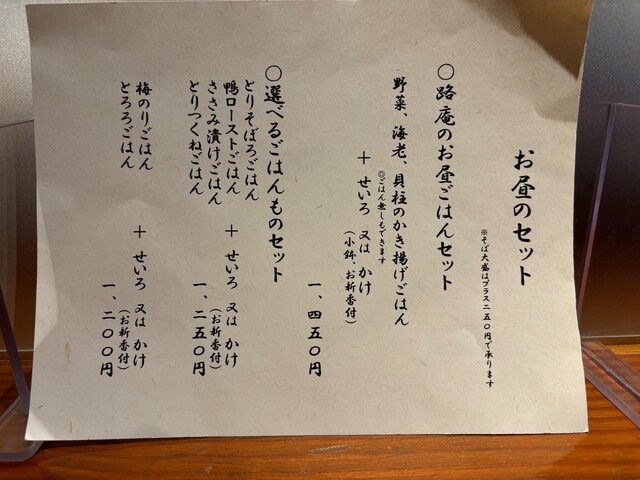 お昼のセット
※そば大盛はプラス二五〇円で承ります
〇路庵のお昼ごはんセット
野菜、海老、貝柱のかき揚げごはん
◎ごはん無しもできます
＋ せいろ 又は かけ
（小鉢、お新香付）
一、四五〇円
〇選べるごはんものセット
とりそぼろごはん
鴨ローストごはん
ささみ漬けごはん
とりつくねごはん
＋ せいろ 又は かけ
（お新香付）
一、二五〇円
梅のりごはん
とろろごはん
＋ せいろ 又は かけ
（お新香付）
一、二〇〇円